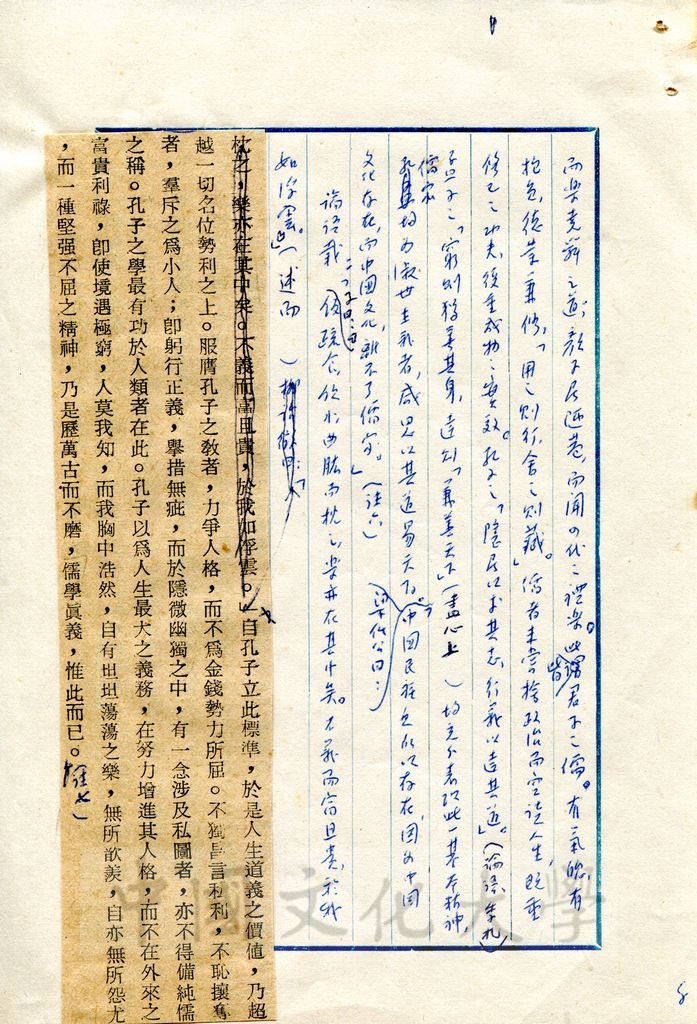 而樂堯舜之道，顏子居陋巷，而聞四代之禮樂。此皆君子之儒。有氣魄，有
抱負，德業兼修，「用之則行，舍之則藏」。儒者未嘗捨政治而空談人生，既重
修己之功夫，復重成物之實效。孔子之「隱居以求其志，行義以達其道」。（論語季氏）
孟子之「窮則獨善其身，達則兼善天下」（盡心上　）均充分表現此一基本精神，
儒家均為淑世主義者，咸思以其道易天下。梁任公曰：「中國民族之所以存在，因為中國
文化存在，而中國文化，離不了儒家。」（注六）
論語載「子曰：飯疏食，飲水，曲肱而枕之，樂亦在其中矣。不義而富且貴，於我
如浮雲。」（述而　）柳詒徵曰：「
枕之，樂亦在其中矣。不義而富且貴，於我如俘雲。」自孔子立此標準，於是人生道義之價値，乃超
越一切名位勢利之上。服膺孔子之敎者，力爭人格，而不爲金錢勢力所屈。不獨昌言私利，不恥攘奪
者，羣斥之爲小人；卽躬行正義，擧措無疵，而於隱微幽獨之中，有一念涉及私圖者，亦不得備純儒
之稱。孔子之學最有功於人類者在此。孔子以爲人生最大之義務，在努力增進其人格，而不在外來之
富貴利祿，卽使境遇極窮，人莫我知，而我胸中浩然，自有坦坦蕩蕩之樂，無所歆羨，自亦無所怨尤
，而一種堅强不屈之精神，乃是歷萬古而不磨，儒學眞義，惟此而已。（注七）
中國文化大學
8